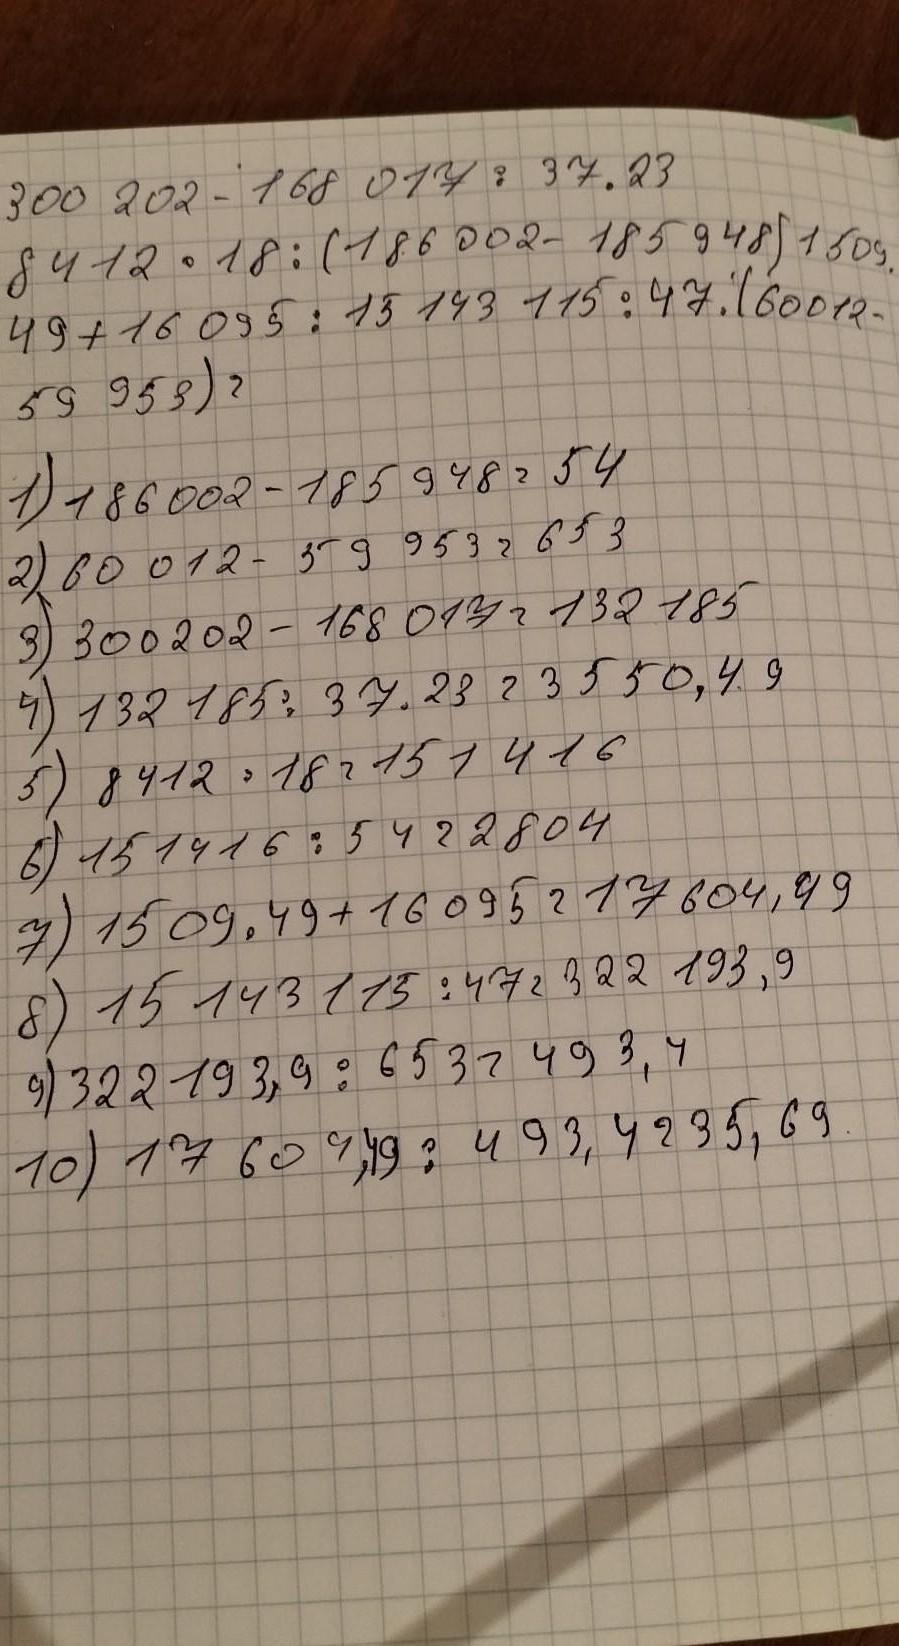 300 202 - 168 017 : 37.23
8412 · 18 : (186 002 - 185 948) 1509.
49 + 16 095 : 15 143 115 : 47 : (60012-
59 953) =
1) 186002 - 185 948 = 54
2) 60 012 - 59 953 = 653
3) 300202 - 168 017 = 132 185
4) 132 185 : 37.23 = 3550,49
5) 8412 · 18 = 151 416
6) 151416 : 54 = 2804
7) 1509.49 + 16095 = 17 604,49
8) 15 143 115 : 47 = 322 193,9
9) 322 193,9 : 653 = 493,4
10) 17 604,49 : 493,4 = 35,69